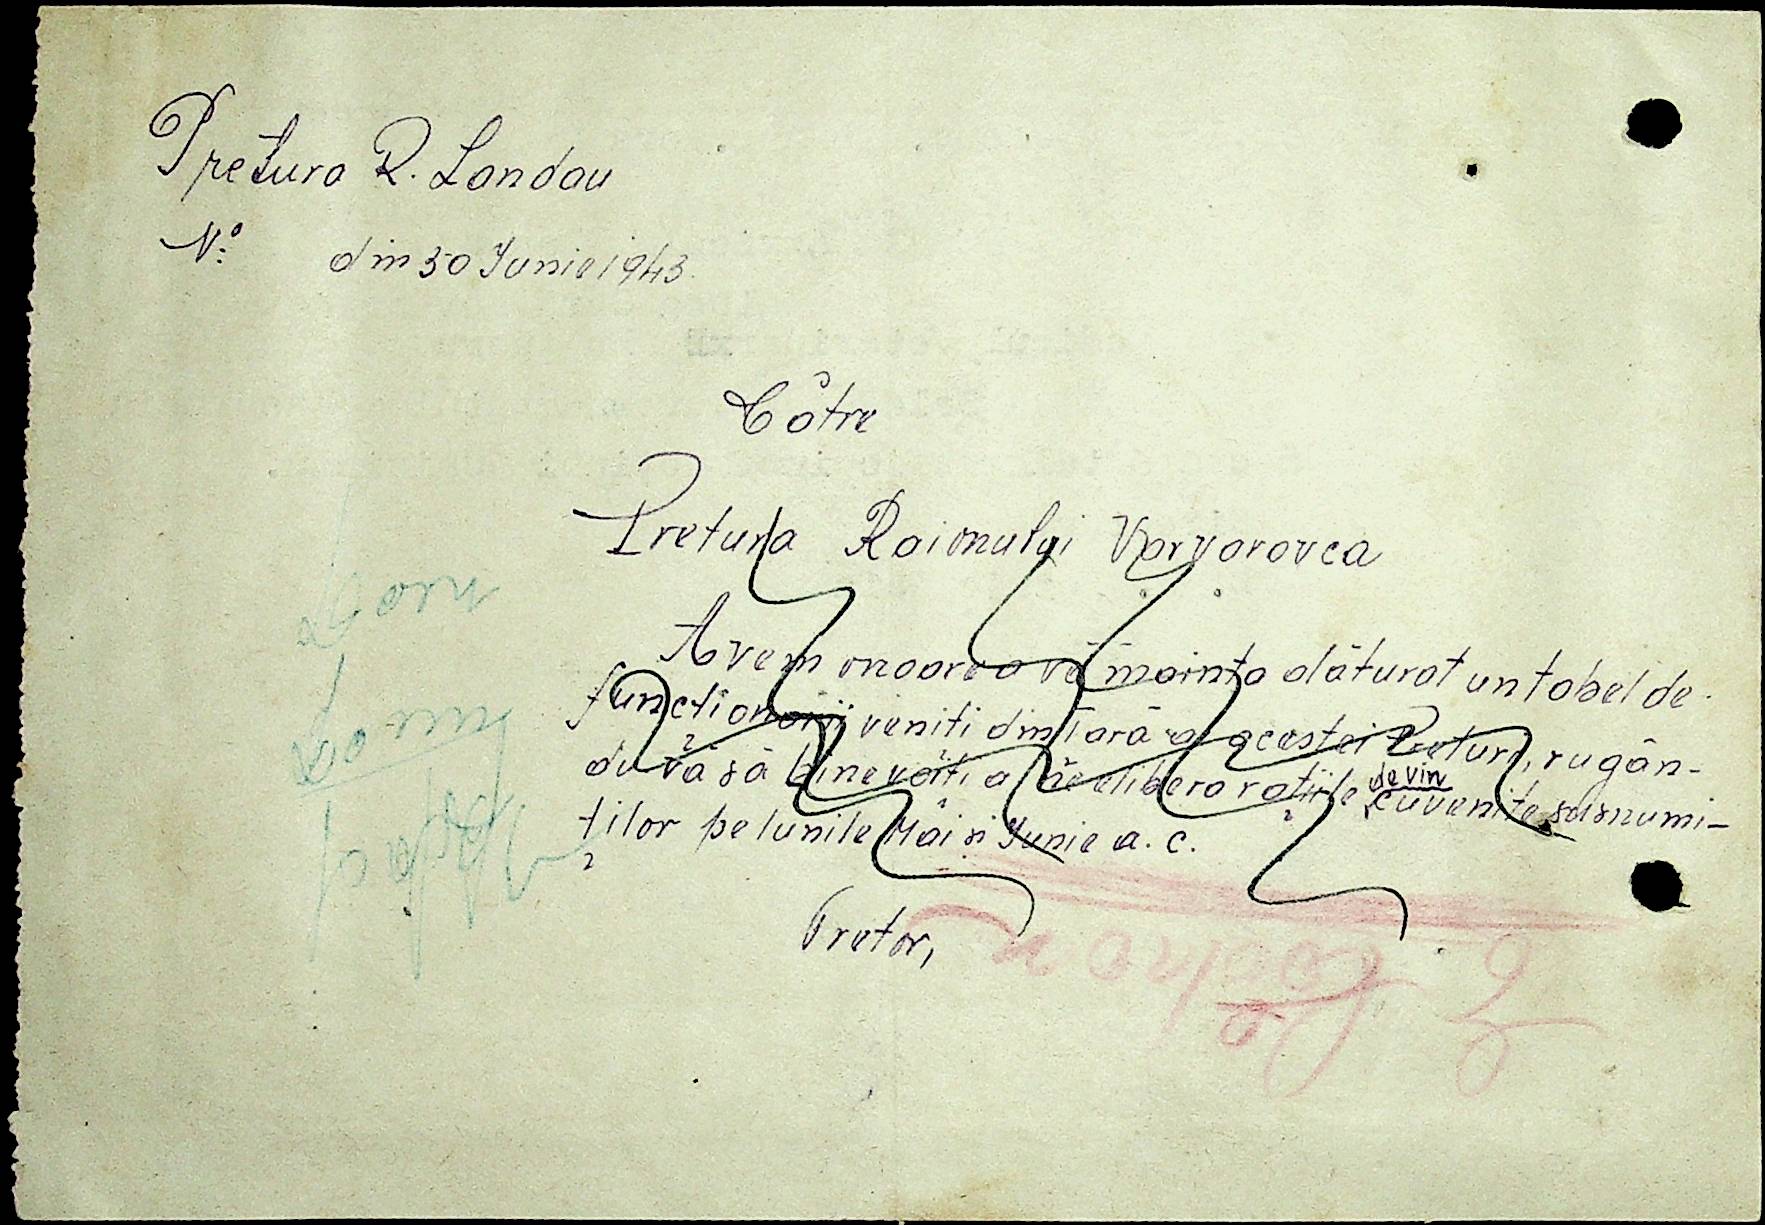 Pretura R. Landau
No: din 30 Iunie 1943.
Către
Pretura Raionului Varvarovca
Avem onoarea vă înainta alăturat un tabel de
funcționarii veniti din Țară a acestei Preturi, rugân-
du vă să binevoiți a ne elibera rațiile de vin cuvenite susnumi-
ților pe lunile Mai și Iunie a. c.
Pretor,